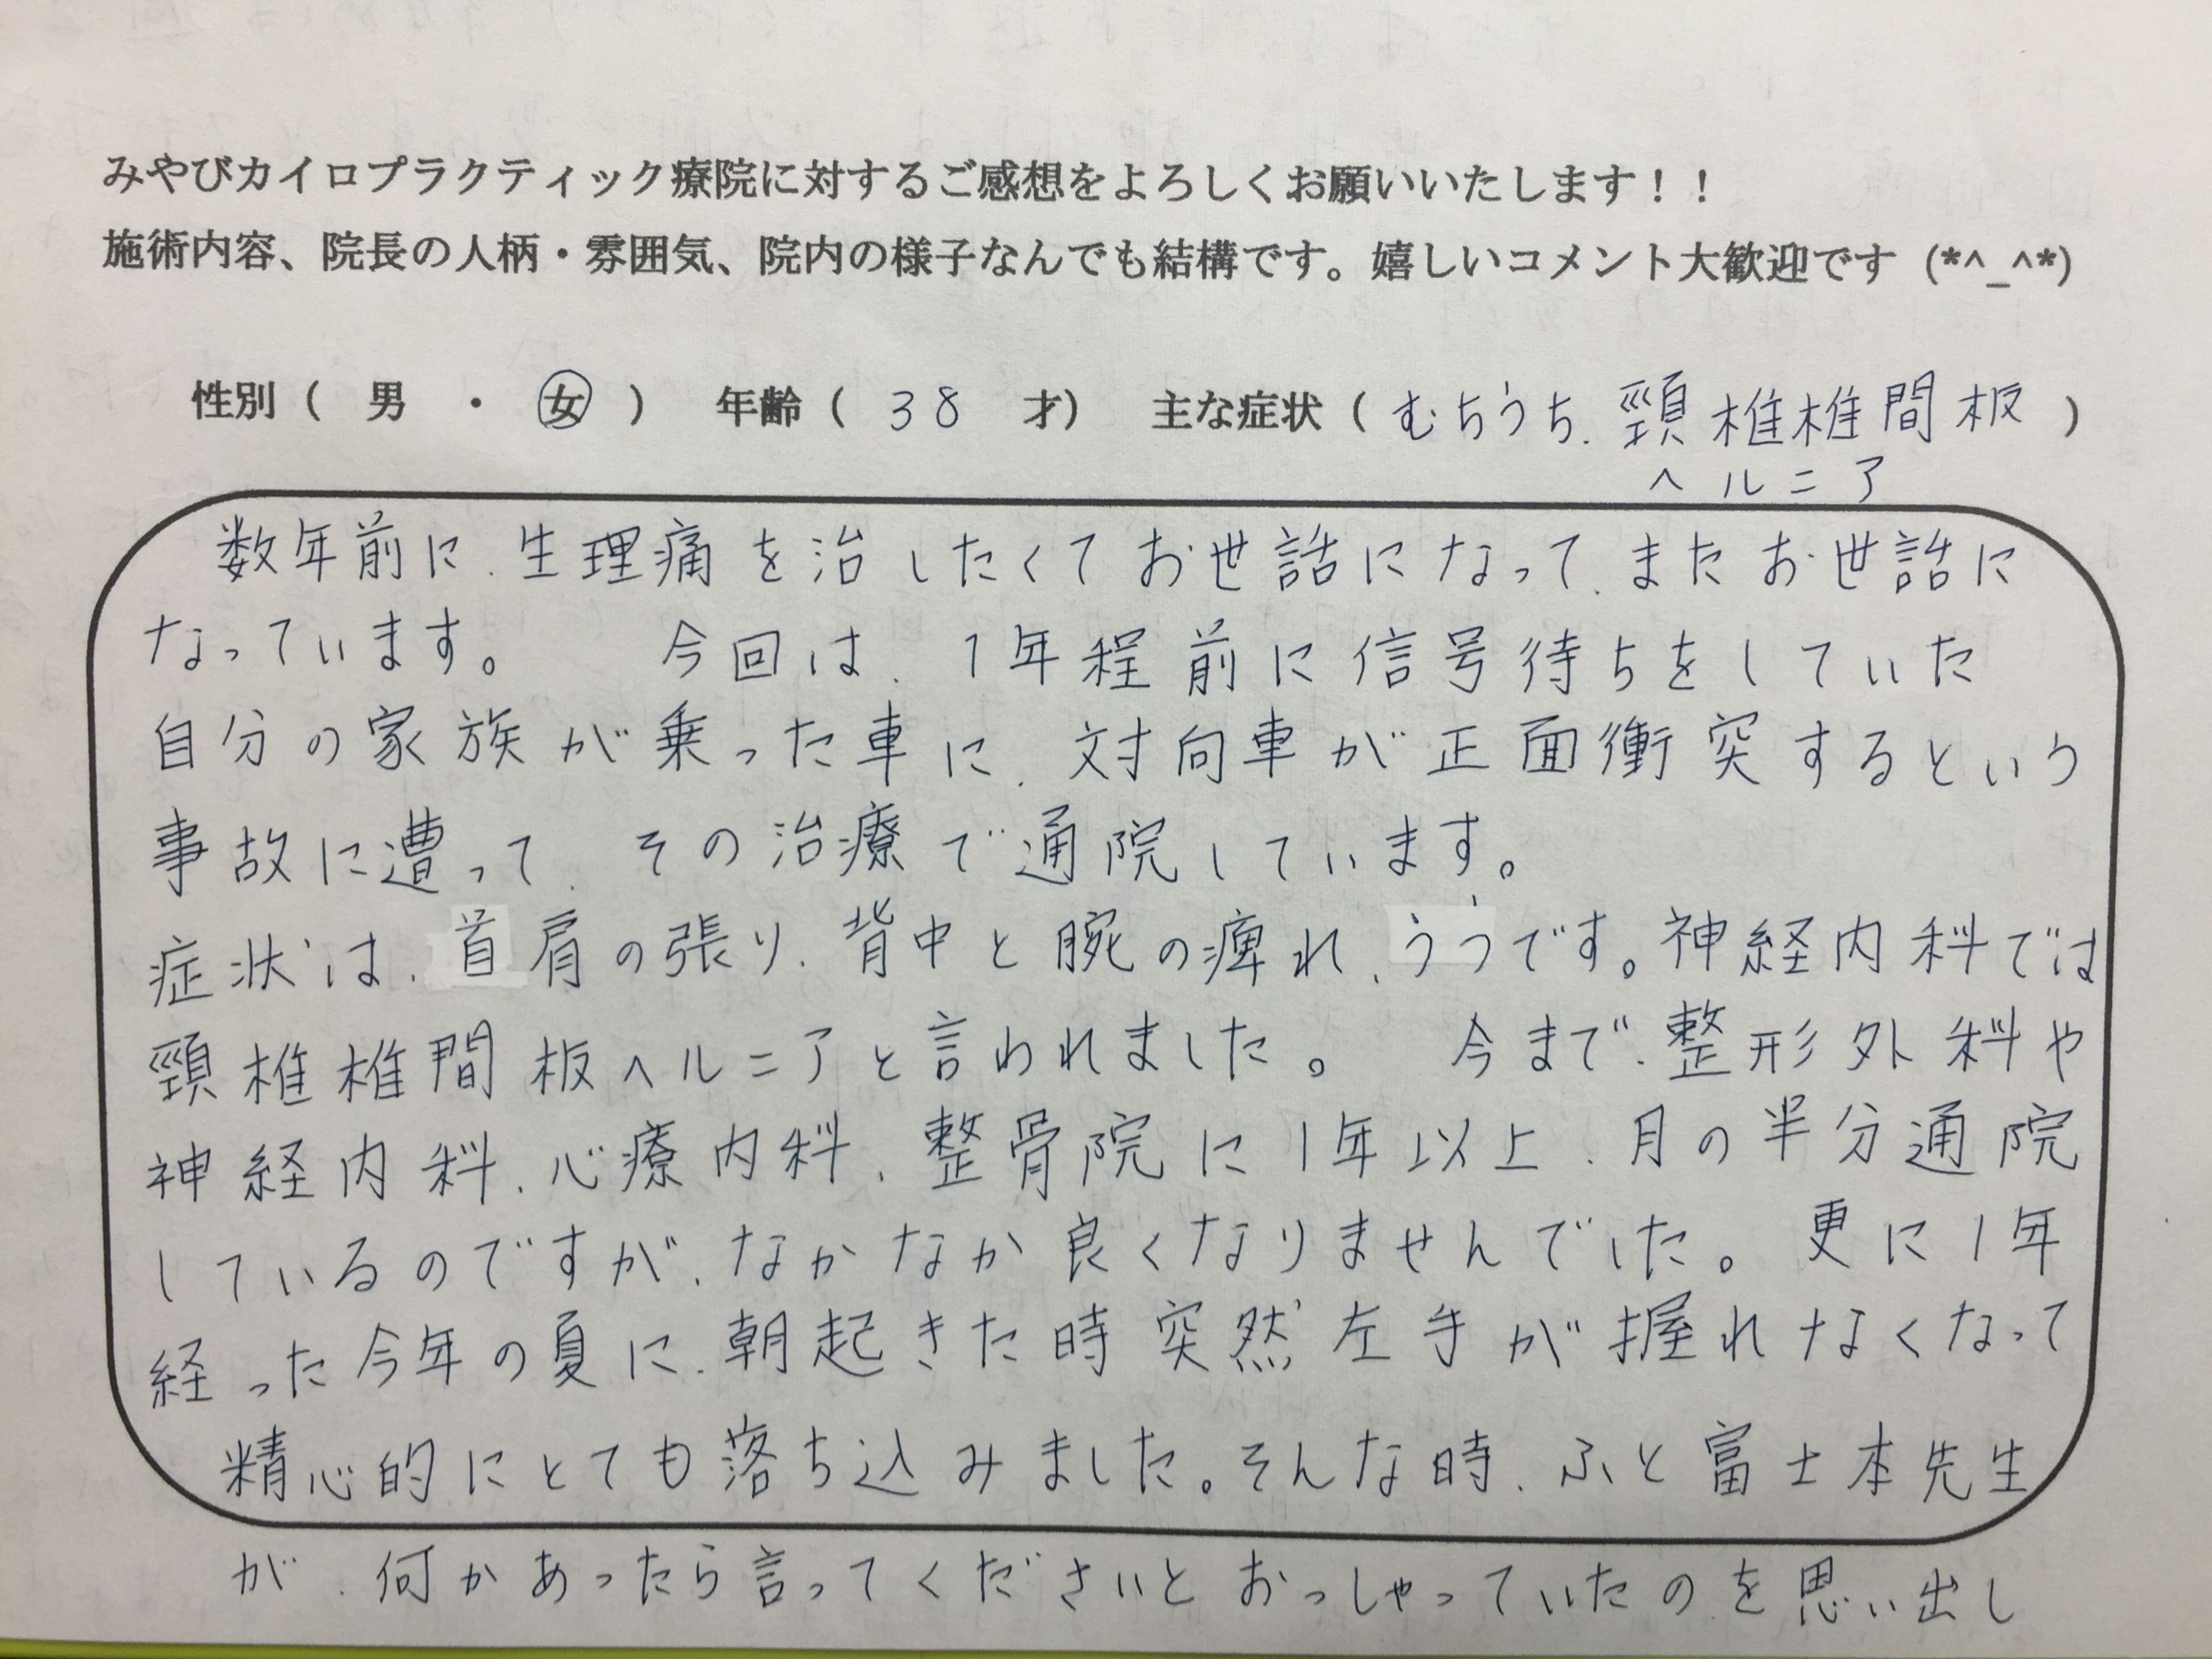 みやびカイロプラクティック療院に対するご感想をよろしくお願いいたします！！
施術内容、院長の人柄・雰囲気、院内の様子なんでも結構です。嬉しいコメント大歓迎です (*^_^*)
性別（ 男 ・ 女 ） 年齢（ 38 才） 主な症状（ むちうち、頸椎椎間板 ）
ヘルニア
数年前に、生理痛を治したくてお世話になって、またお世話に
なっています。 今回は、1年程前に信号待ちをしていた
自分の家族が乗った車に、対向車が正面衝突するという
事故に遭って、その治療で通院しています。
症状は、首肩の張り、背中と腕の痺れ、うつです。神経内科では
頸椎椎間板ヘルニアと言われました。 今まで、整形外科や
神経内科、心療内科、整骨院に1年以上、月の半分通院
しているのですが、なかなか良くなりませんでした。更に1年
経った今年の夏に、朝起きた時突然左手が握れなくなって
精心的にとても落ち込みました。そんな時、ふと富士本先生
が、何かあったら言ってくださいとおっしゃっていたのを思い出し